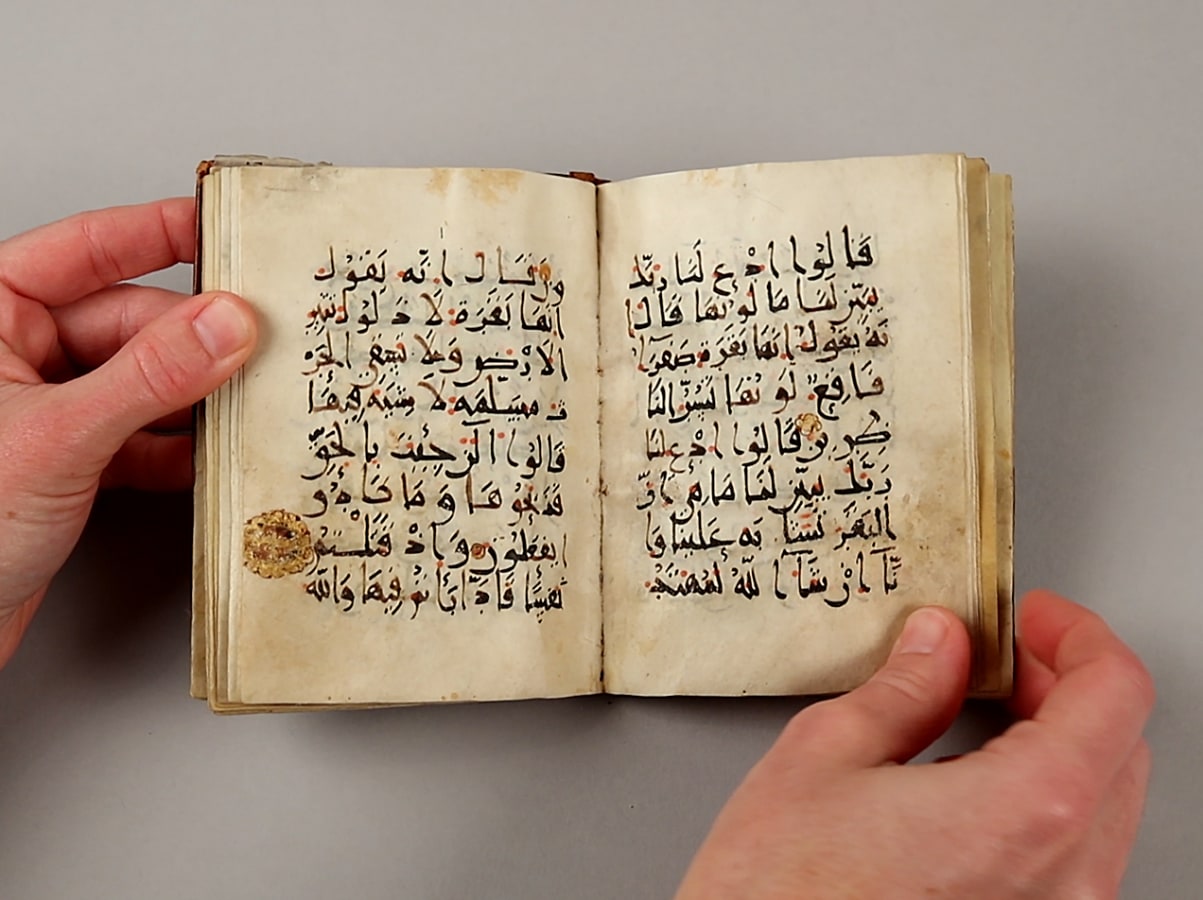 قالوا ادع لنا ربك
يبين لنا ما لونها قال ا
نه يقول انها بقرة صفرا
فاقع لونها تسر النا
ظرين قالوا ادع لنا
ربك يبين لنا ما هي ان
البقر تشبه علينا وا
نا ان شا الله لمهتد
ون قال انه يقول
انها بقرة لا ذلول تثير
الارض ولا تسقي الحر
ث مسلمة لا شية فيها
قالوا الن جيت بالحق
فذبحوها وما كادو
ا يفعلون واذ قتلتم
نفسا فادارأتم فيها والله